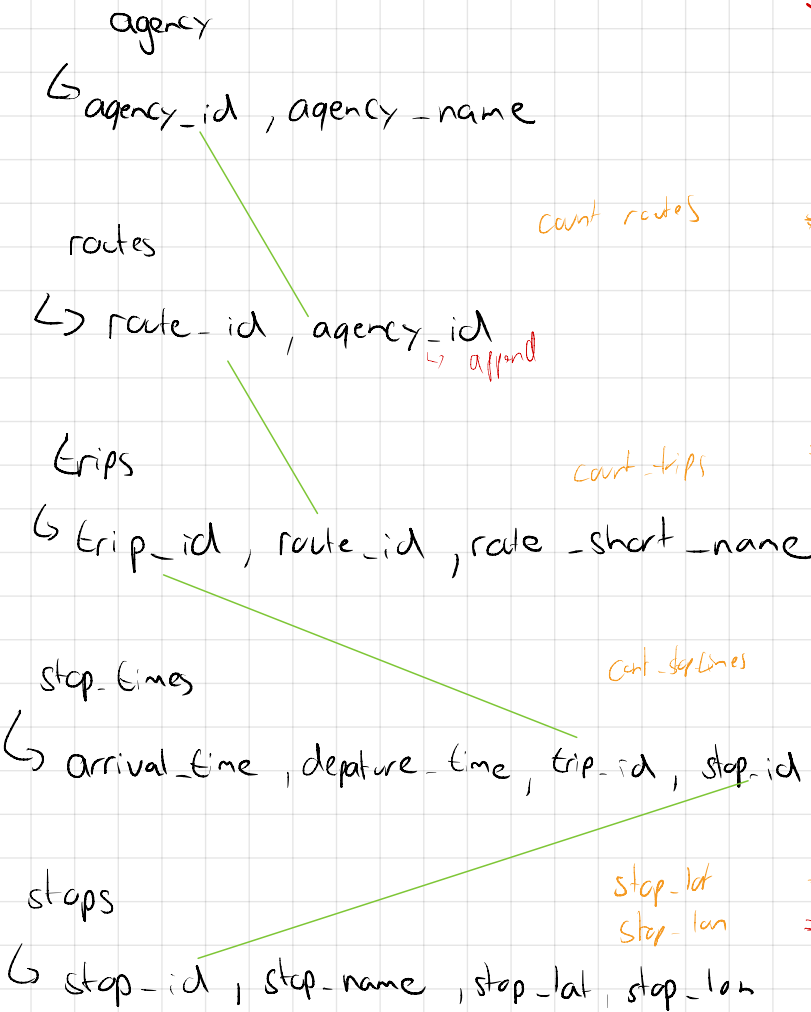 agency
agency_id , agency_name
count routes
routes
route_id , agency_id
append
trips
count_trips
trip_id , route_id , rate_short_name
stop_times
arrival_time , depature_time , trip_id , stop_id
stops
stop_lat
stop_lon
stop_id , stop_name , stop_lat , stop_lon